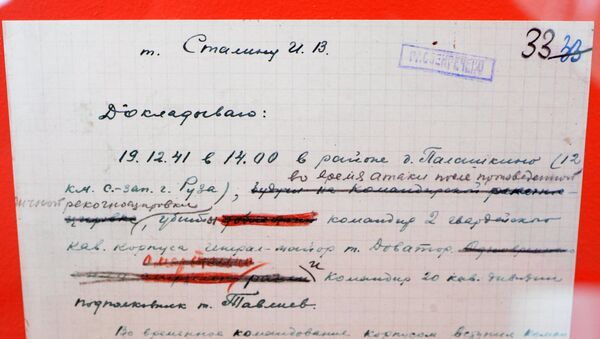 33 33
т. Сталину И. В.
РАССЕКРЕЧЕНО
Докладываю:
19.12.41 в 14.00 в районе д. Палашкино (12
во время атаки после проведенной
км. с.-зап. г. Руза), будучи на командирской
личной рекогносцировки
убиты командир 2 гвардейского
кав. корпуса генерал-майор т. Доватор.
и командир 20 кав. дивизии
подполковник т. Тавлиев.
Во временное командование корпусом вступил